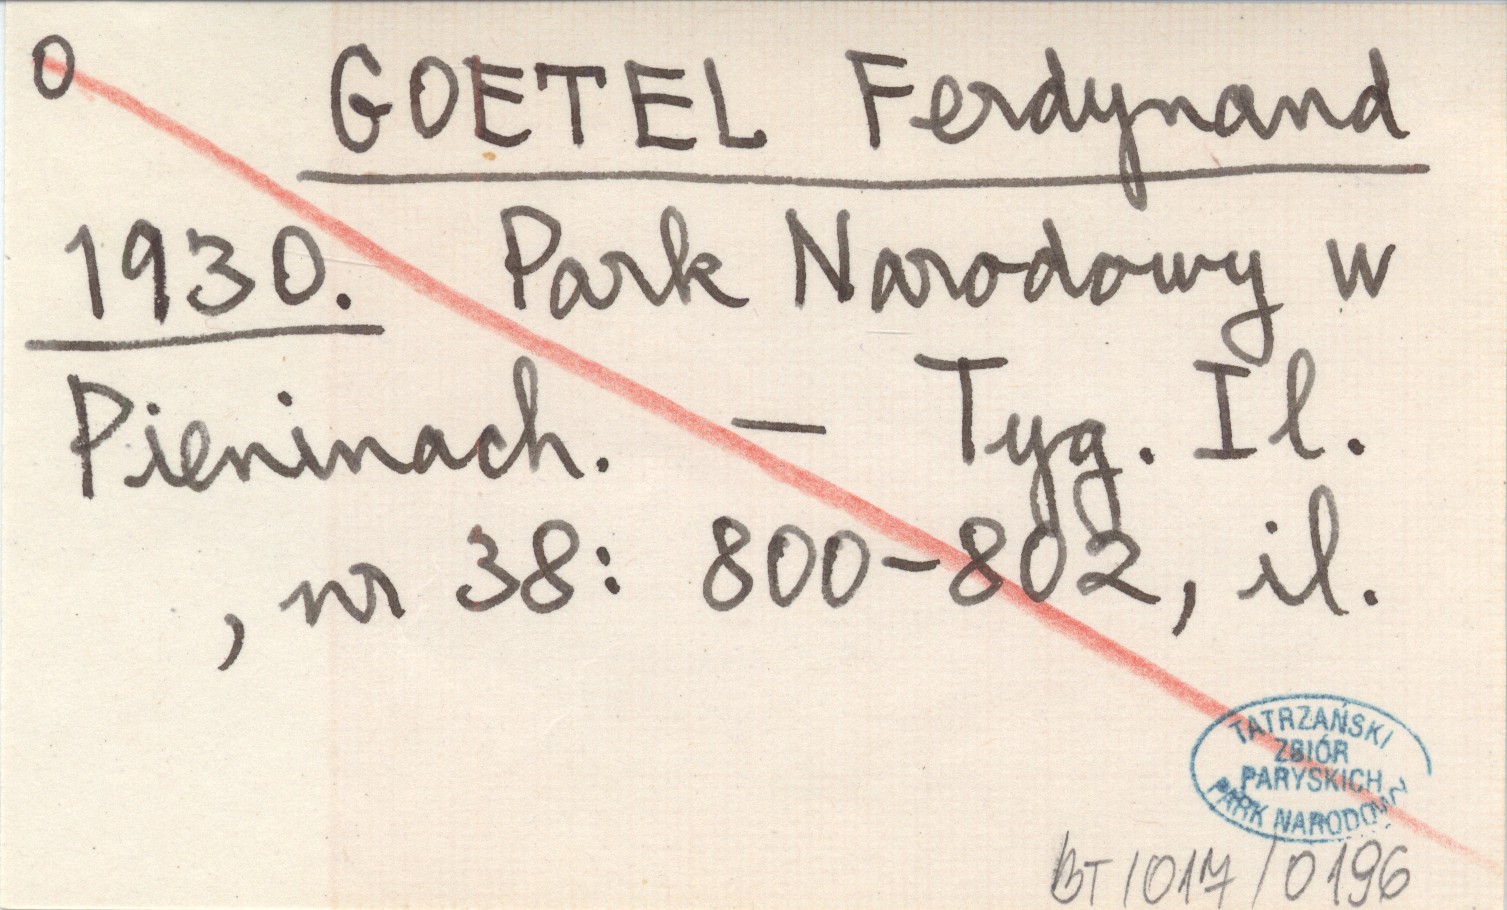 O
GOETEL Ferdynand
1930. Park Narodowy w
Pieninach. — Tyg. Il.
, nr 38: 800-802, il.
TATRZAŃSKI
ZBIÓR
PARYSKICH
PARK NARODOWY
BT/017/0196